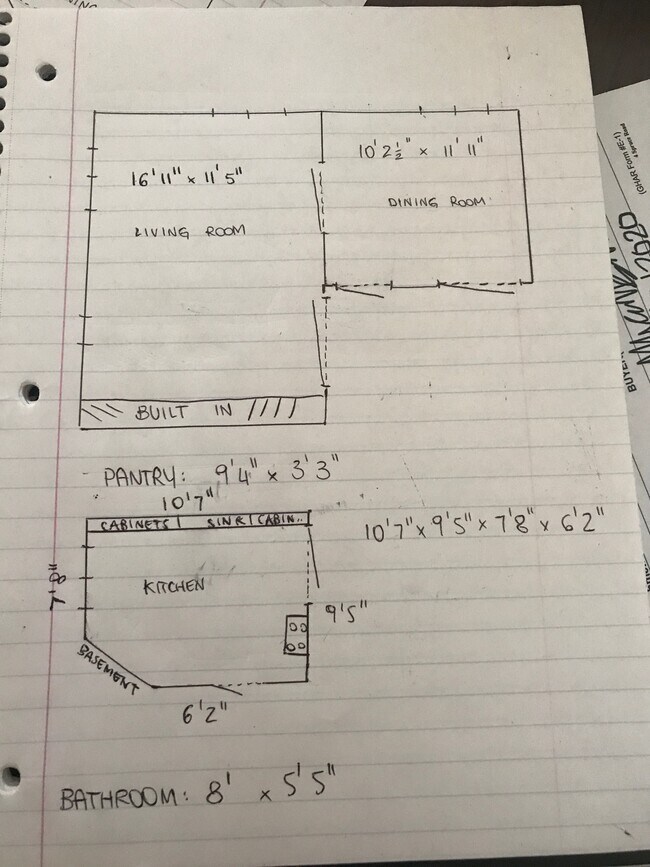 10' 2½" x 11' 11"
16' 11" x 11' 5"
DINING ROOM
LIVING ROOM
BUILT IN
- PANTRY: 9'4" x 3'3"
10'7"
CABINETS | SINK | CABIN..
10'7" x 9'5" x 7'8" x 6'2"
KITCHEN
7'8"
9'5"
BASEMENT
6'2"
BATHROOM: 8' x 5'5"
(GHAR Form #E-1)
2020
BUYER